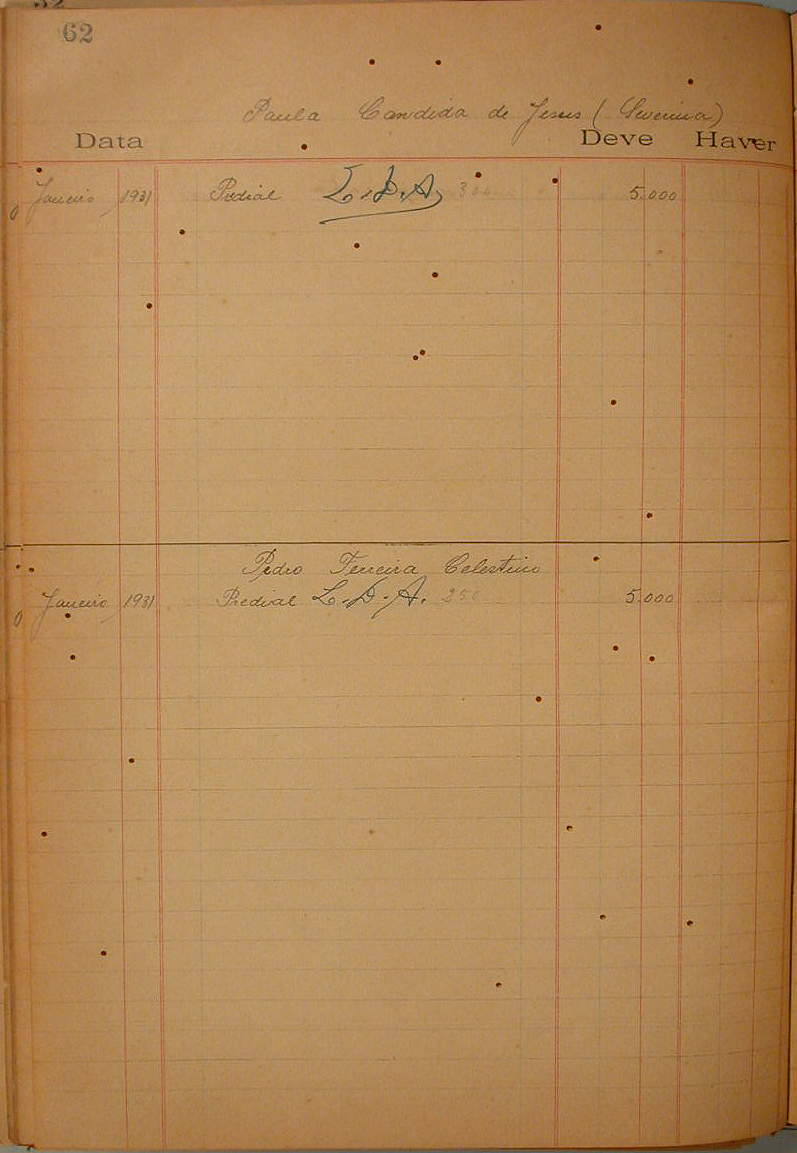 62
Paula Candida de Jesus (Severina)
Data Deve Haver
Janeiro 1931 Predial L.D.A. 300 5.000
Pedro Ferreira Celestino
Janeiro 1931 Predial L.D.A. 250 5.000